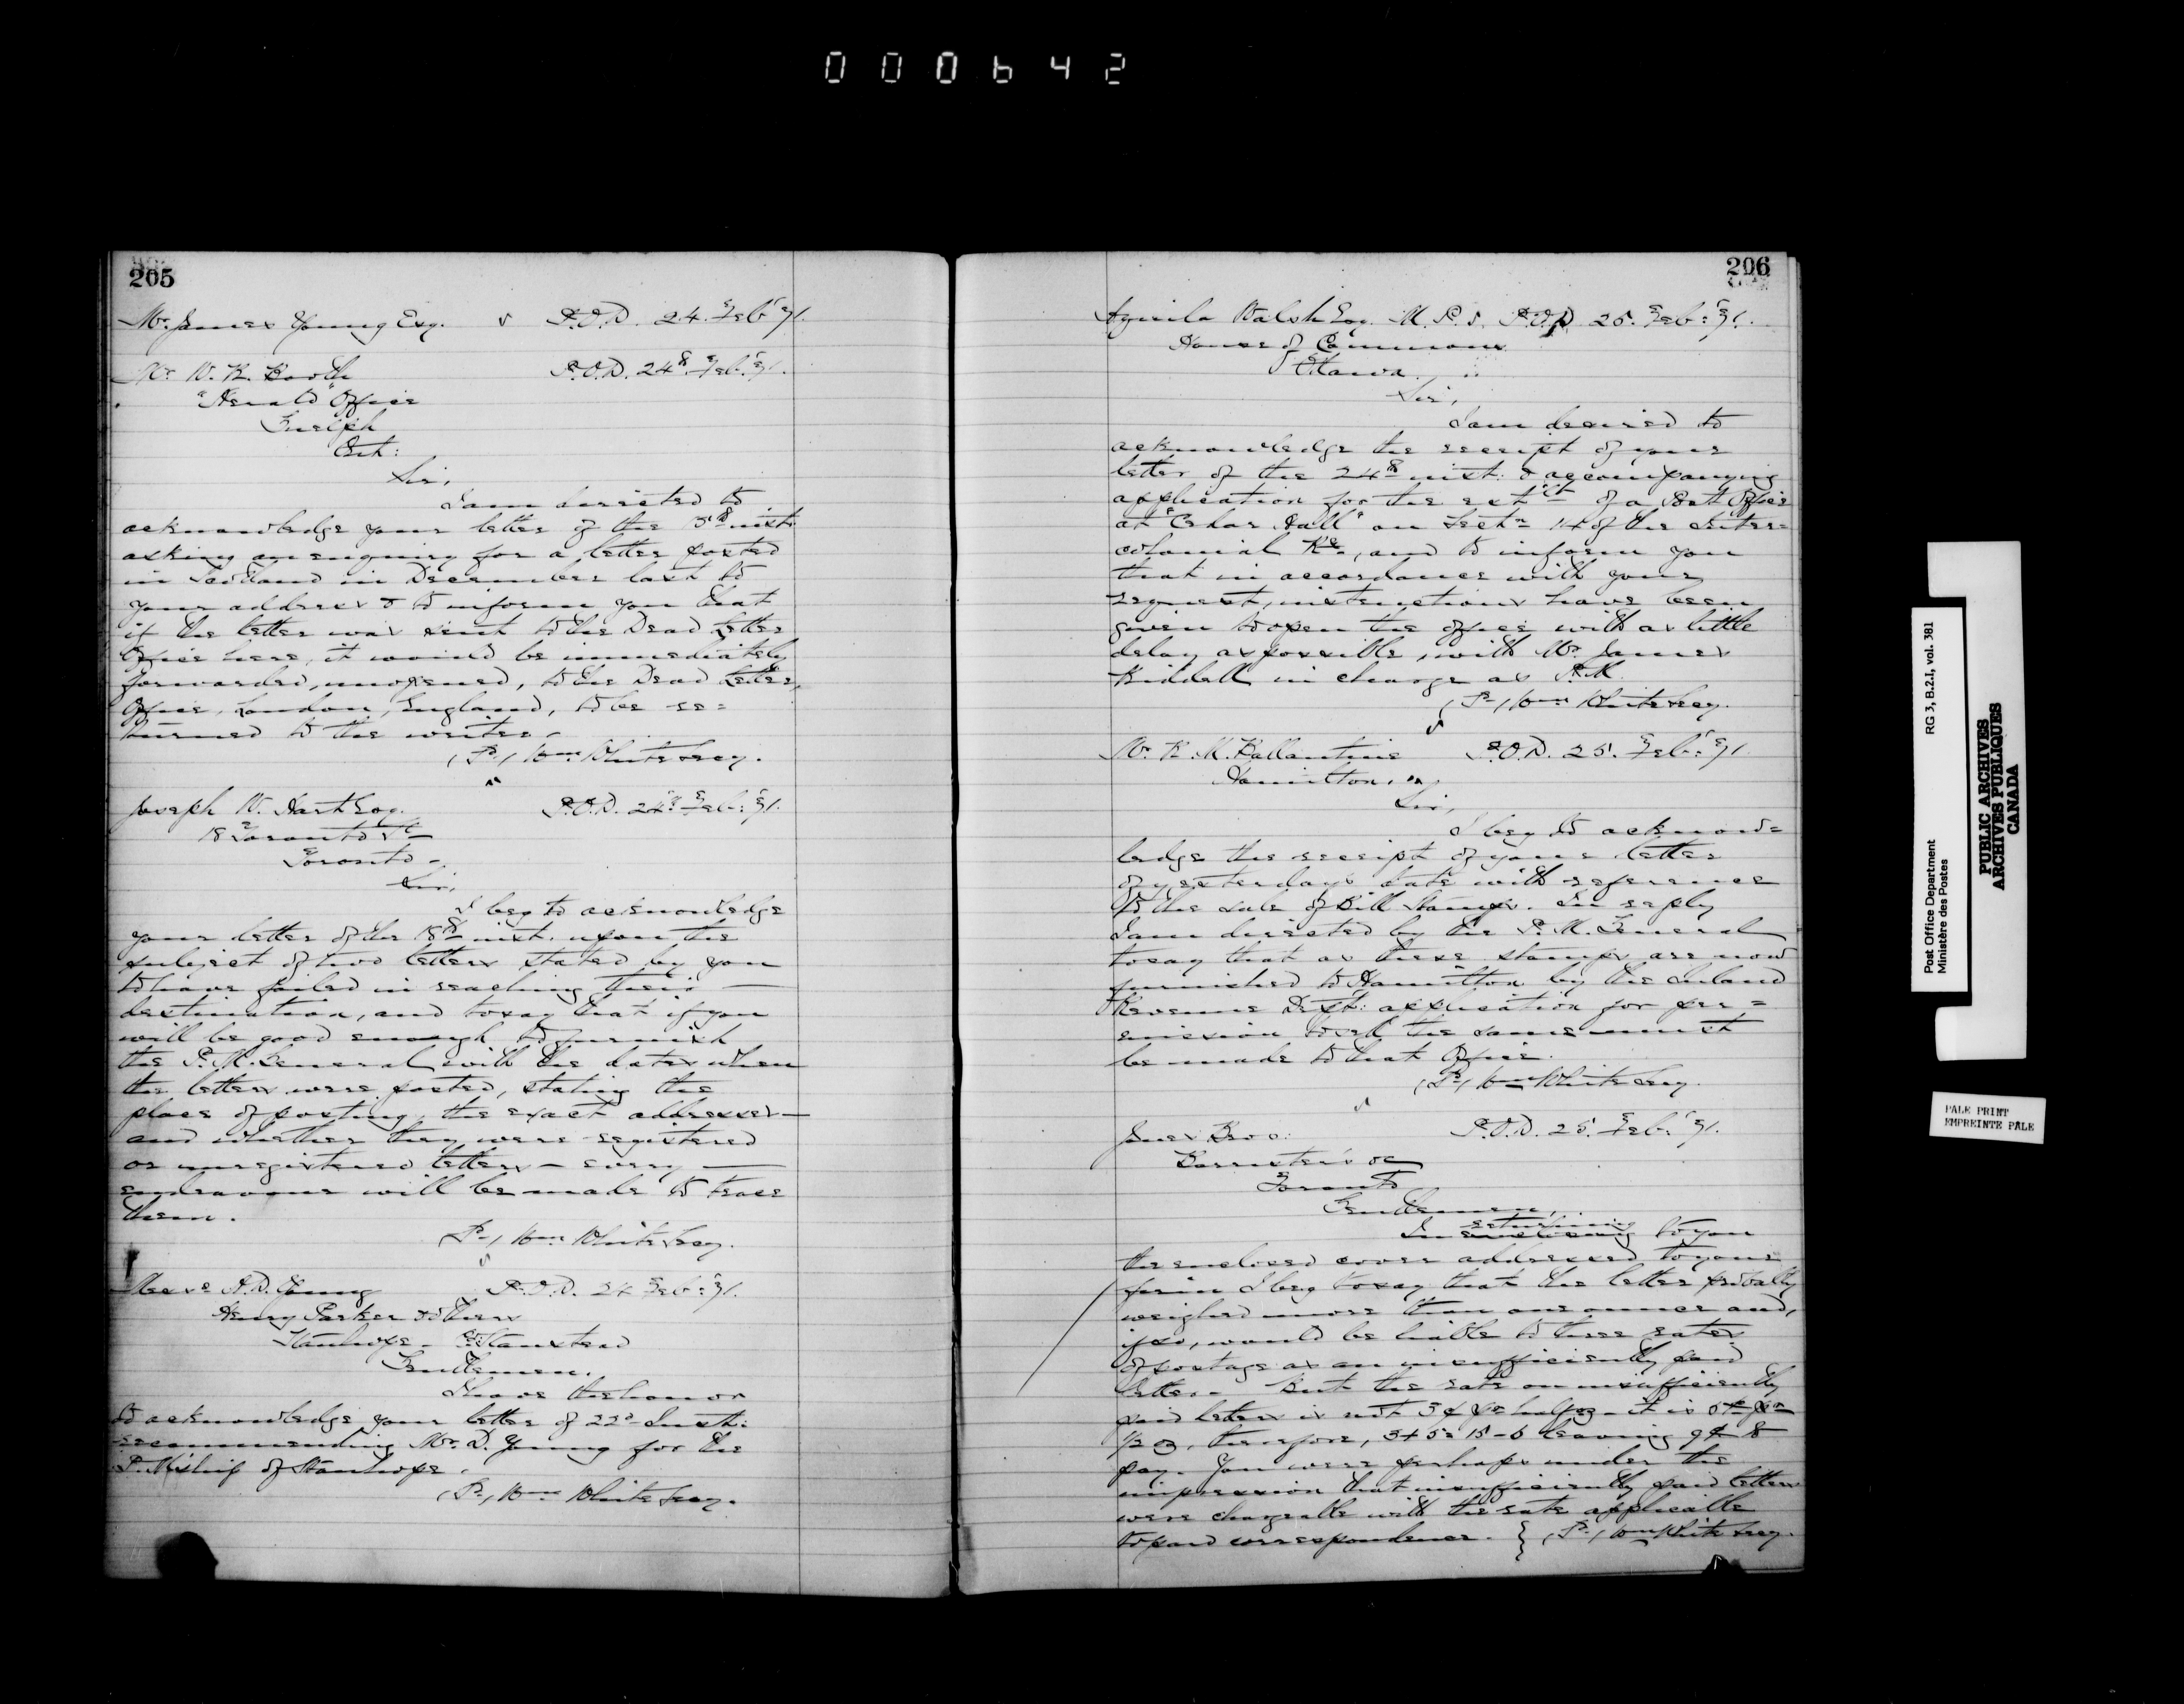 000642
205
Mr. James Young Esq. P.O.D. 24. Feb: '71.
Mr. W. K. Booth P.O.D. 24th Feb: '71.
"Herald" Office
Guelph
Ont:
Sir,
I am directed to
acknowledge your letter of the 15th inst.
asking an enquiry for a letter posted
in Scotland in December last to
your address & to inform you that
if the letter was sent to the Dead Letter
Office here, it would be immediately
forwarded, unopened, to the Dead Letter
Office, London, England, to be re=
turned to the writer.
(Sd) Wm White Secy.
Joseph W. Hart Esq. P.O.D. 24th Feb: '71.
18 Toronto St
Toronto -
Sir,
I beg to acknowledge
your letter of the 18th inst. upon the
subject of two letters stated by you
to have failed in reaching their
destination, and to say that if you
will be good enough to furnish
the P.M. General with the dates when
the letters were posted, stating the
place of posting, the exact addresses -
and whether they were registered
or unregistered letters - every
endeavour will be made to trace
them.
(Sd) Wm White Secy.
Messrs A.D. Young P.O.D. 24 Feb: '71.
Henry Parker & others
Stanhope - Co: Stanstead
Gentlemen.
I have the honor
to acknowledge your letter of 22d Inst:
recommending Mr. D. Young for the
P.M'ship of Stanhope.
(Sd) Wm White Secy.
206
Aquila Walsh Esq. M.P. P.O.D. 25. Feb: '71.
House of Commons
Ottawa.
Sir,
I am desired to
acknowledge the receipt of your
letter of the 24th inst: & accompanying
application for the est'bt of a Post Office
at "Cedar Hall" on Sectn 14 of the Inter=
colonial Ry, and to inform you
that in accordance with your
request, instructions have been
given to open the office with as little
delay as possible, with Mr. James
Riddell in charge as P.M.
(Sd) Wm White Secy.
Mr. K. M. Ballantine P.O.D. 25. Feb: '71.
Hamilton, O.
Sir,
I beg to acknow=
ledge the receipt of your letter
of yesterday's date with reference
to the sale of Bill Stamps. In reply
I am directed by the P.M. General
to say that as these stamps are now
furnished to Hamilton by the Inland
Revenue Dept: application for per=
mission to sell the same must
be made to that Office.
(Sd) Wm White Secy.
Jones Bros: P.O.D. 25. Feb: '71.
Barristers &c
Toronto
Gentlemen,
returning
In enclosing to you
the enclosed cover addressed to your
firm I beg to say that the letter probably
weighed more than one ounce and,
if so, would be liable to three rates
of postage as an insufficiently paid
letter. But the rate on insufficiently
paid letters is not 3¢ pr half oz - it is 5¢ pr
1/2 oz, therefore, 3+5= 15-6 leaving 9¢ to
pay. You were perhaps under the
impression that insufficiently paid letters
were chargeable with the rate applicable
to paid correspondence. } (Sd) Wm White Secy.
Post Office Department RG 3, B.2.I, vol. 381
Ministère des Postes
PUBLIC ARCHIVES
ARCHIVES PUBLIQUES
CANADA
PALE PRINT
EMPREINTE PALE